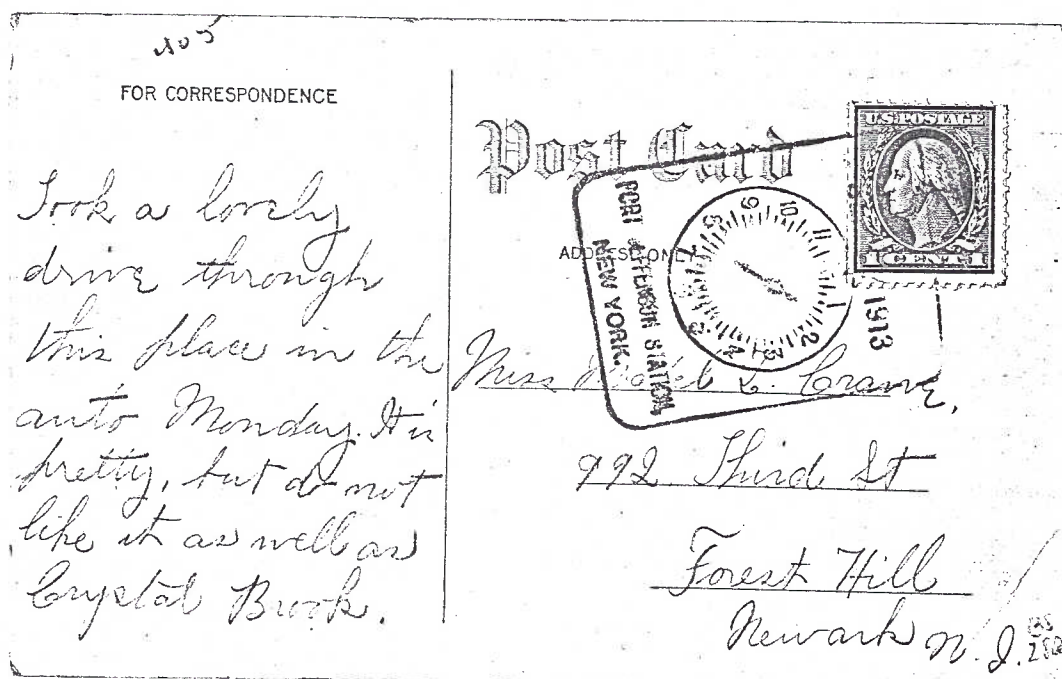 405
FOR CORRESPONDENCE
Took a lovely
drive through
this place in the
auto Monday. It is
pretty, but do not
like it as well as
Crystal Brook.
Post Card
ADDRESS ONLY
U.S. POSTAGE
1 CENT 1
PORT JEFFERSON STATION,
NEW YORK.
1913
1
2
3
4
8
9
10
11
Miss Mabel L. Crane,
992 Third St
Forest Hill
Newark N. J.